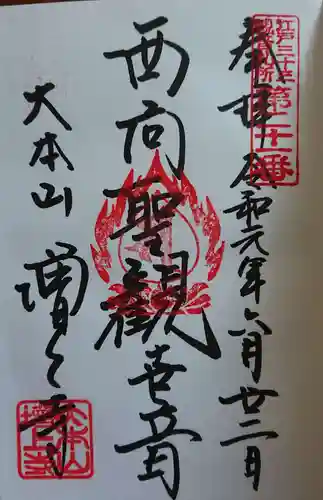 奉拝 令和元年六月廿二日
江戸三十三
観音札所
第二十一番
西向聖觀世音
大本山 増上寺
大本山
増上寺